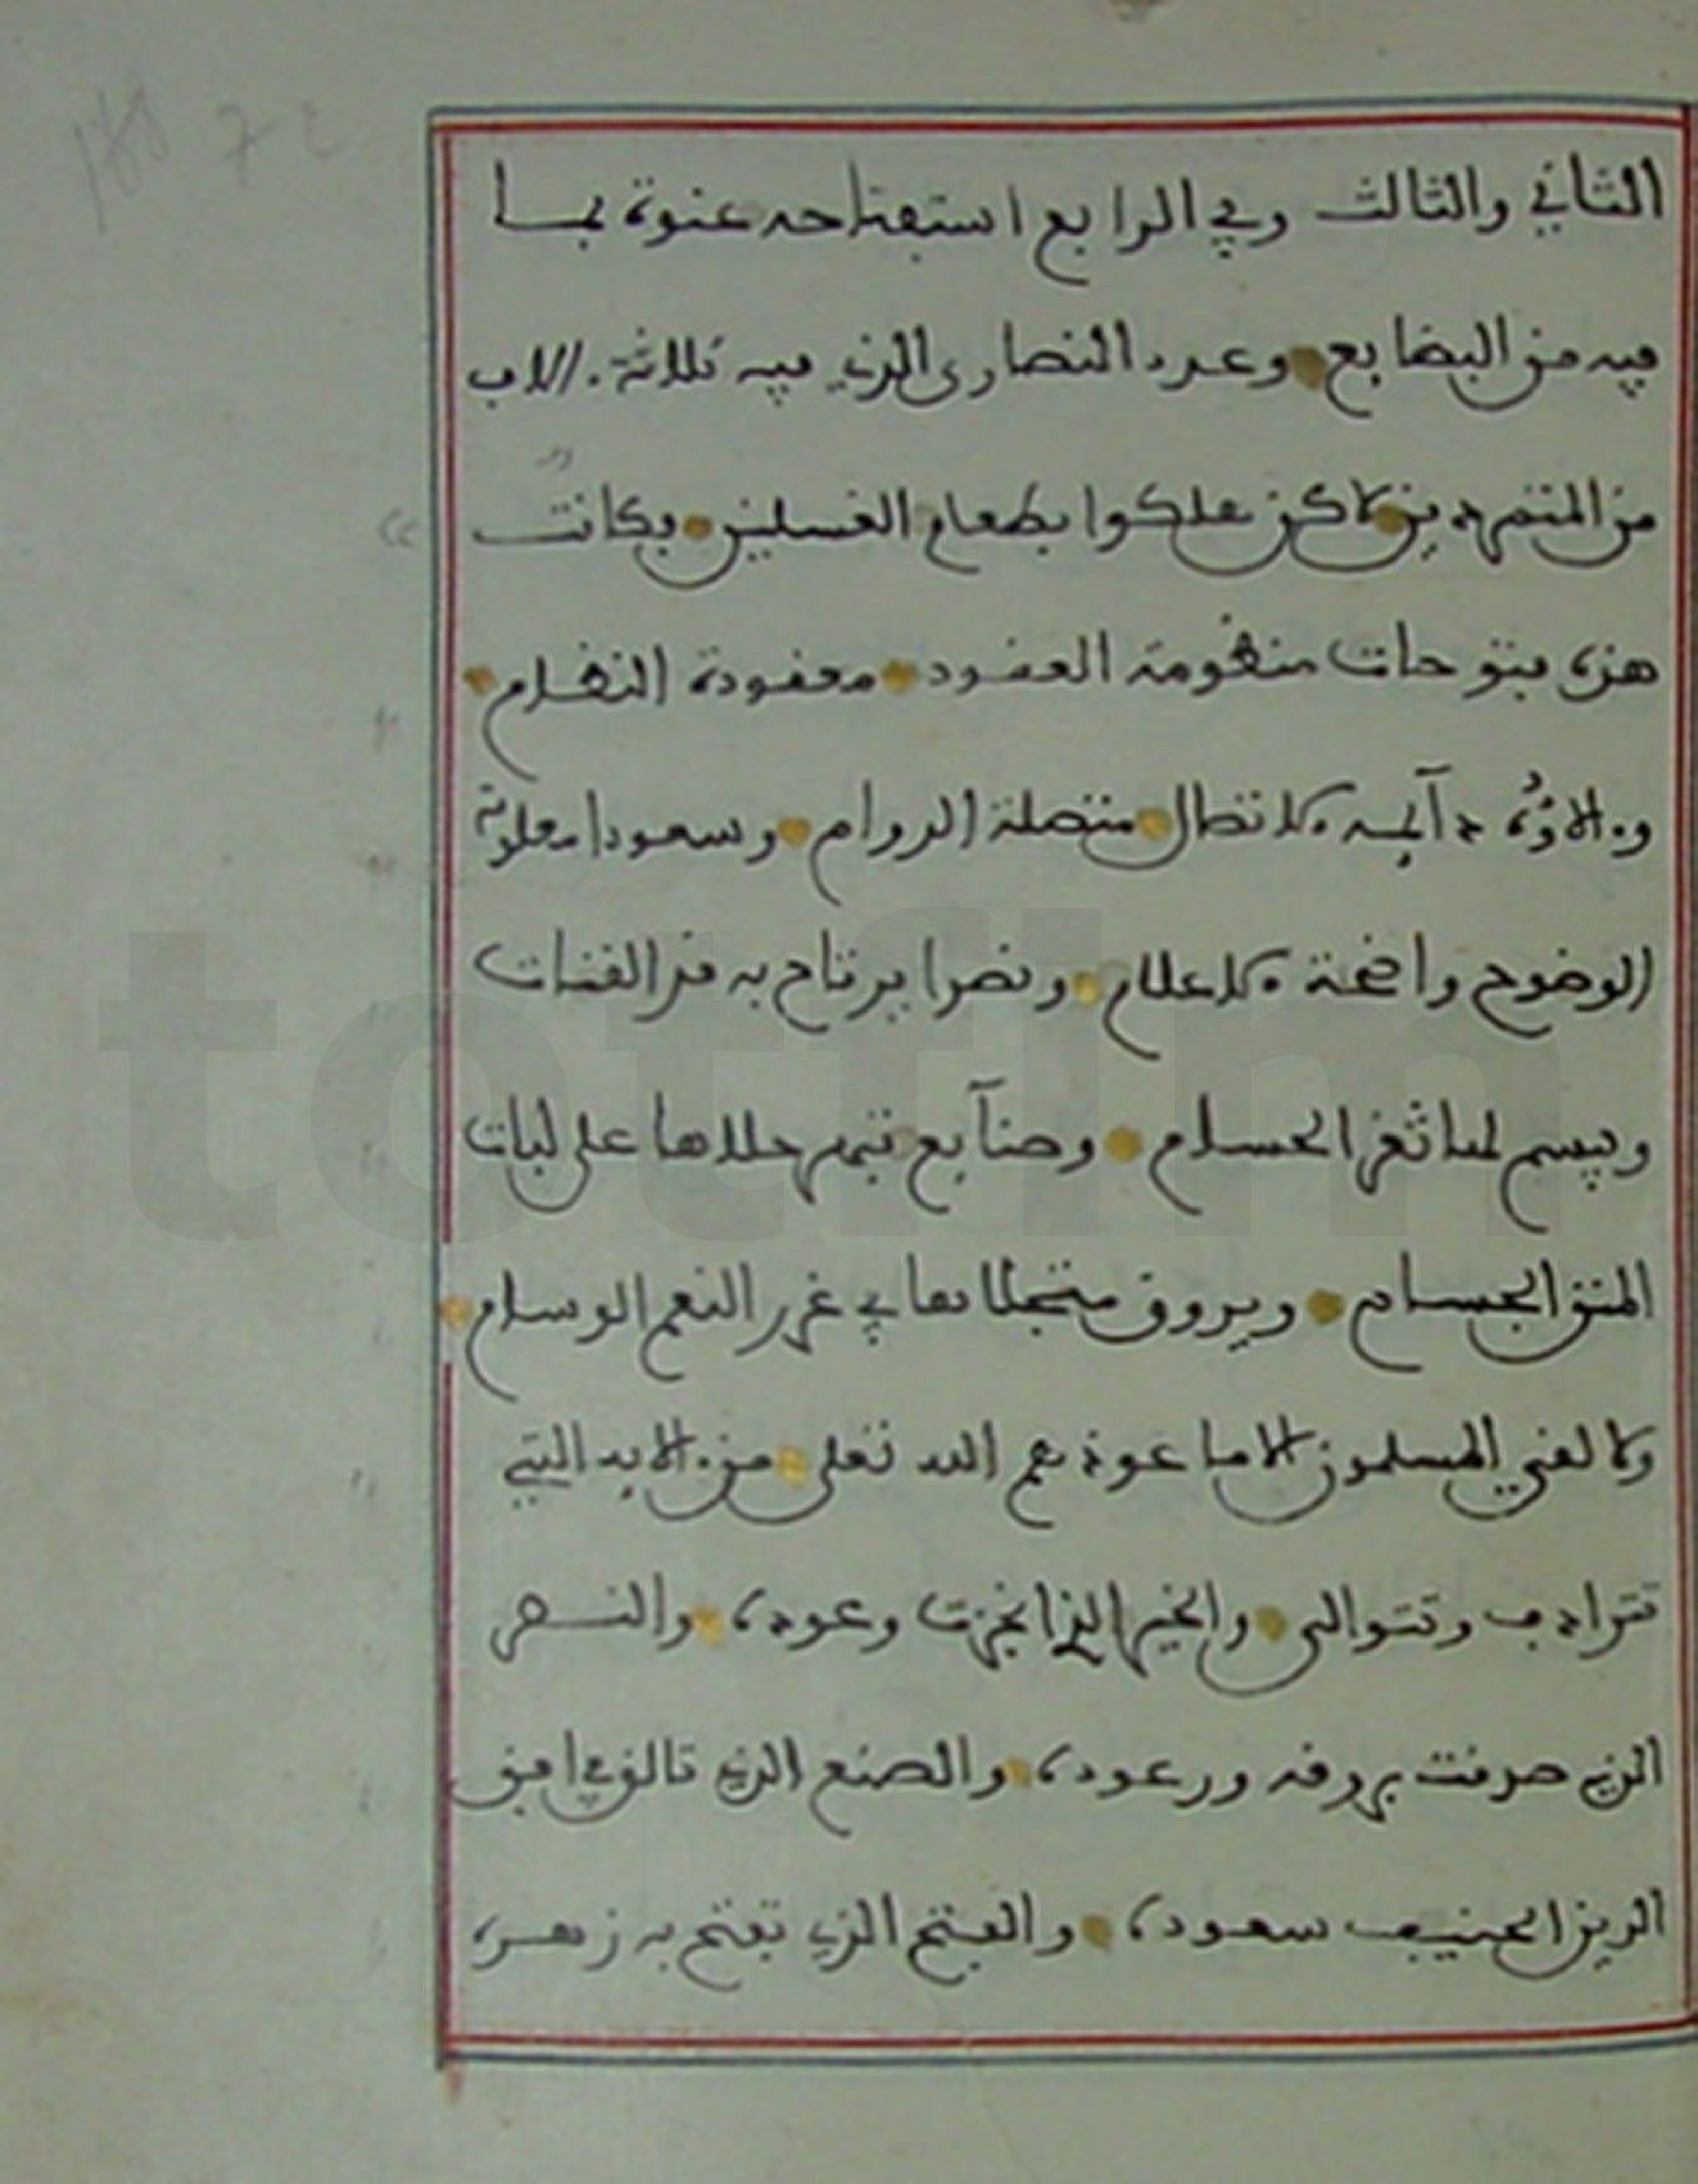 الثاني والثالث وفي الرابع استفتاحه عنوة بما
فيه من البضايع وعدد النصارى الذي فيه ثلاثة ءالاف
من المتنصرين لاكن هلكوا بطعام الغسلين فكانت
هذه فتوحات منظومة العقود معقودة النظام
وءالاؤه دآئمة الاتصال متصلة الدوام وسعودا
الوضوح واضحة الاعلام ونصرا يرتاح به
ويبسم لها ثغر الحسام وصنآيع تبهر حلاها على لبات
المنن الجسام ويروق في غرر النعم الوسام
ولا لقي المسلمون الا ما عودهم الله تعلى من ءالايه التي
تترادف وتتوالى والخير الذي انجزت وعوده والنصر
الذي صدقت بروقه ورعوده والصنع الذي تالق في افق
الدين الحنيف سعوده والفتح الذي تفتح به زهره